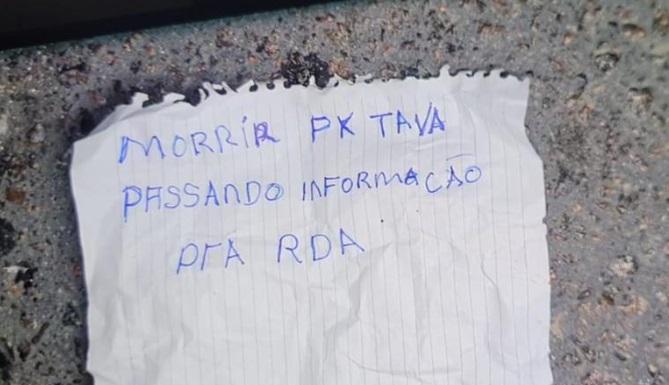 MORRIR PK TAVA
PASSANDO INFORMAÇÃO
PRA RDA